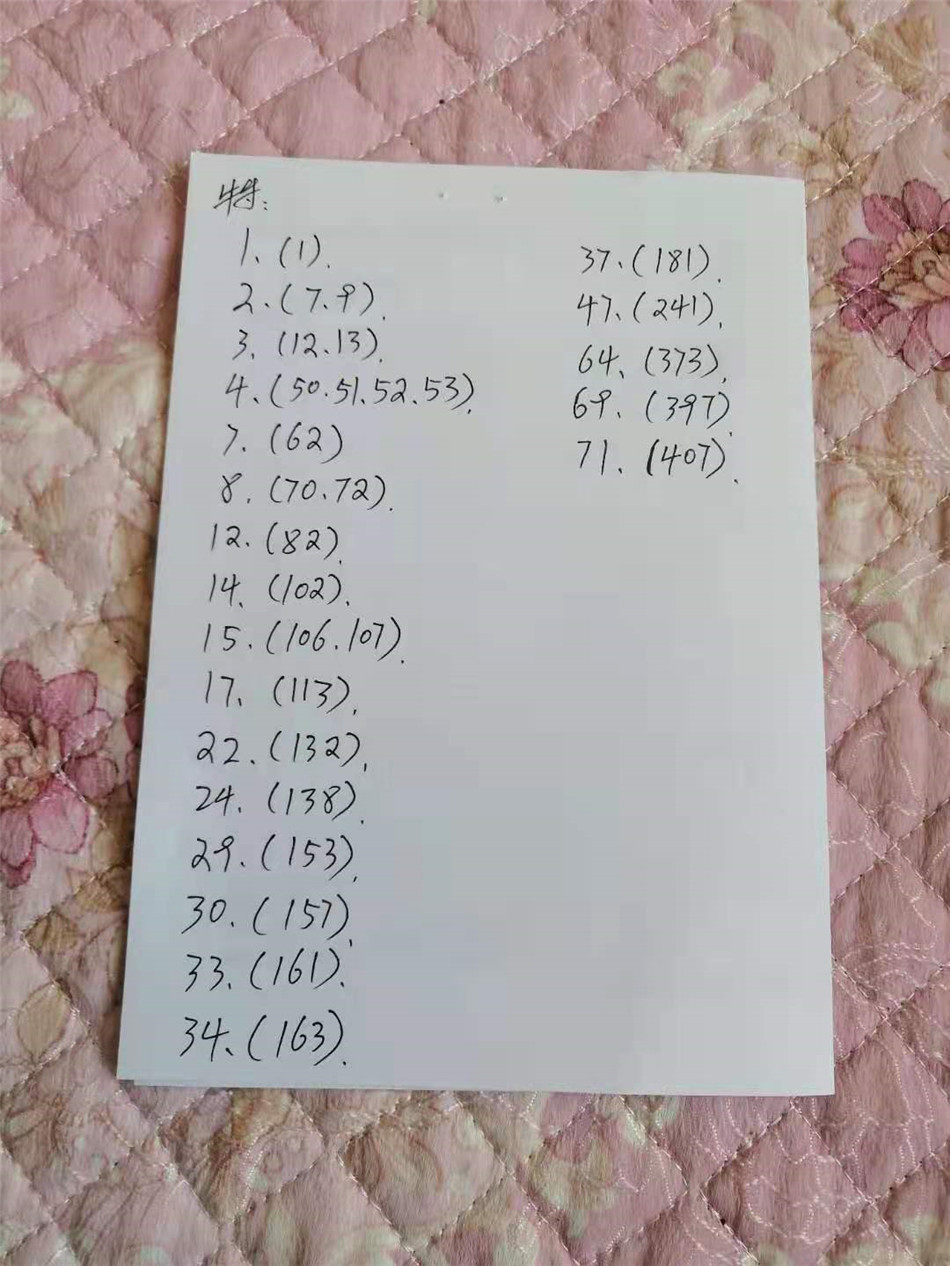 特:
1、(1).
2、(7、9).
3、(12、13).
4、(50、51、52、53).
7、(62)
8、(70、72).
12、(82).
14、(102).
15、(106、107).
17、(113).
22、(132).
24、(138).
29、(153).
30、(157).
33、(161).
34、(163).
37、(181).
47、(241).
64、(373).
69、(397).
71、(407).